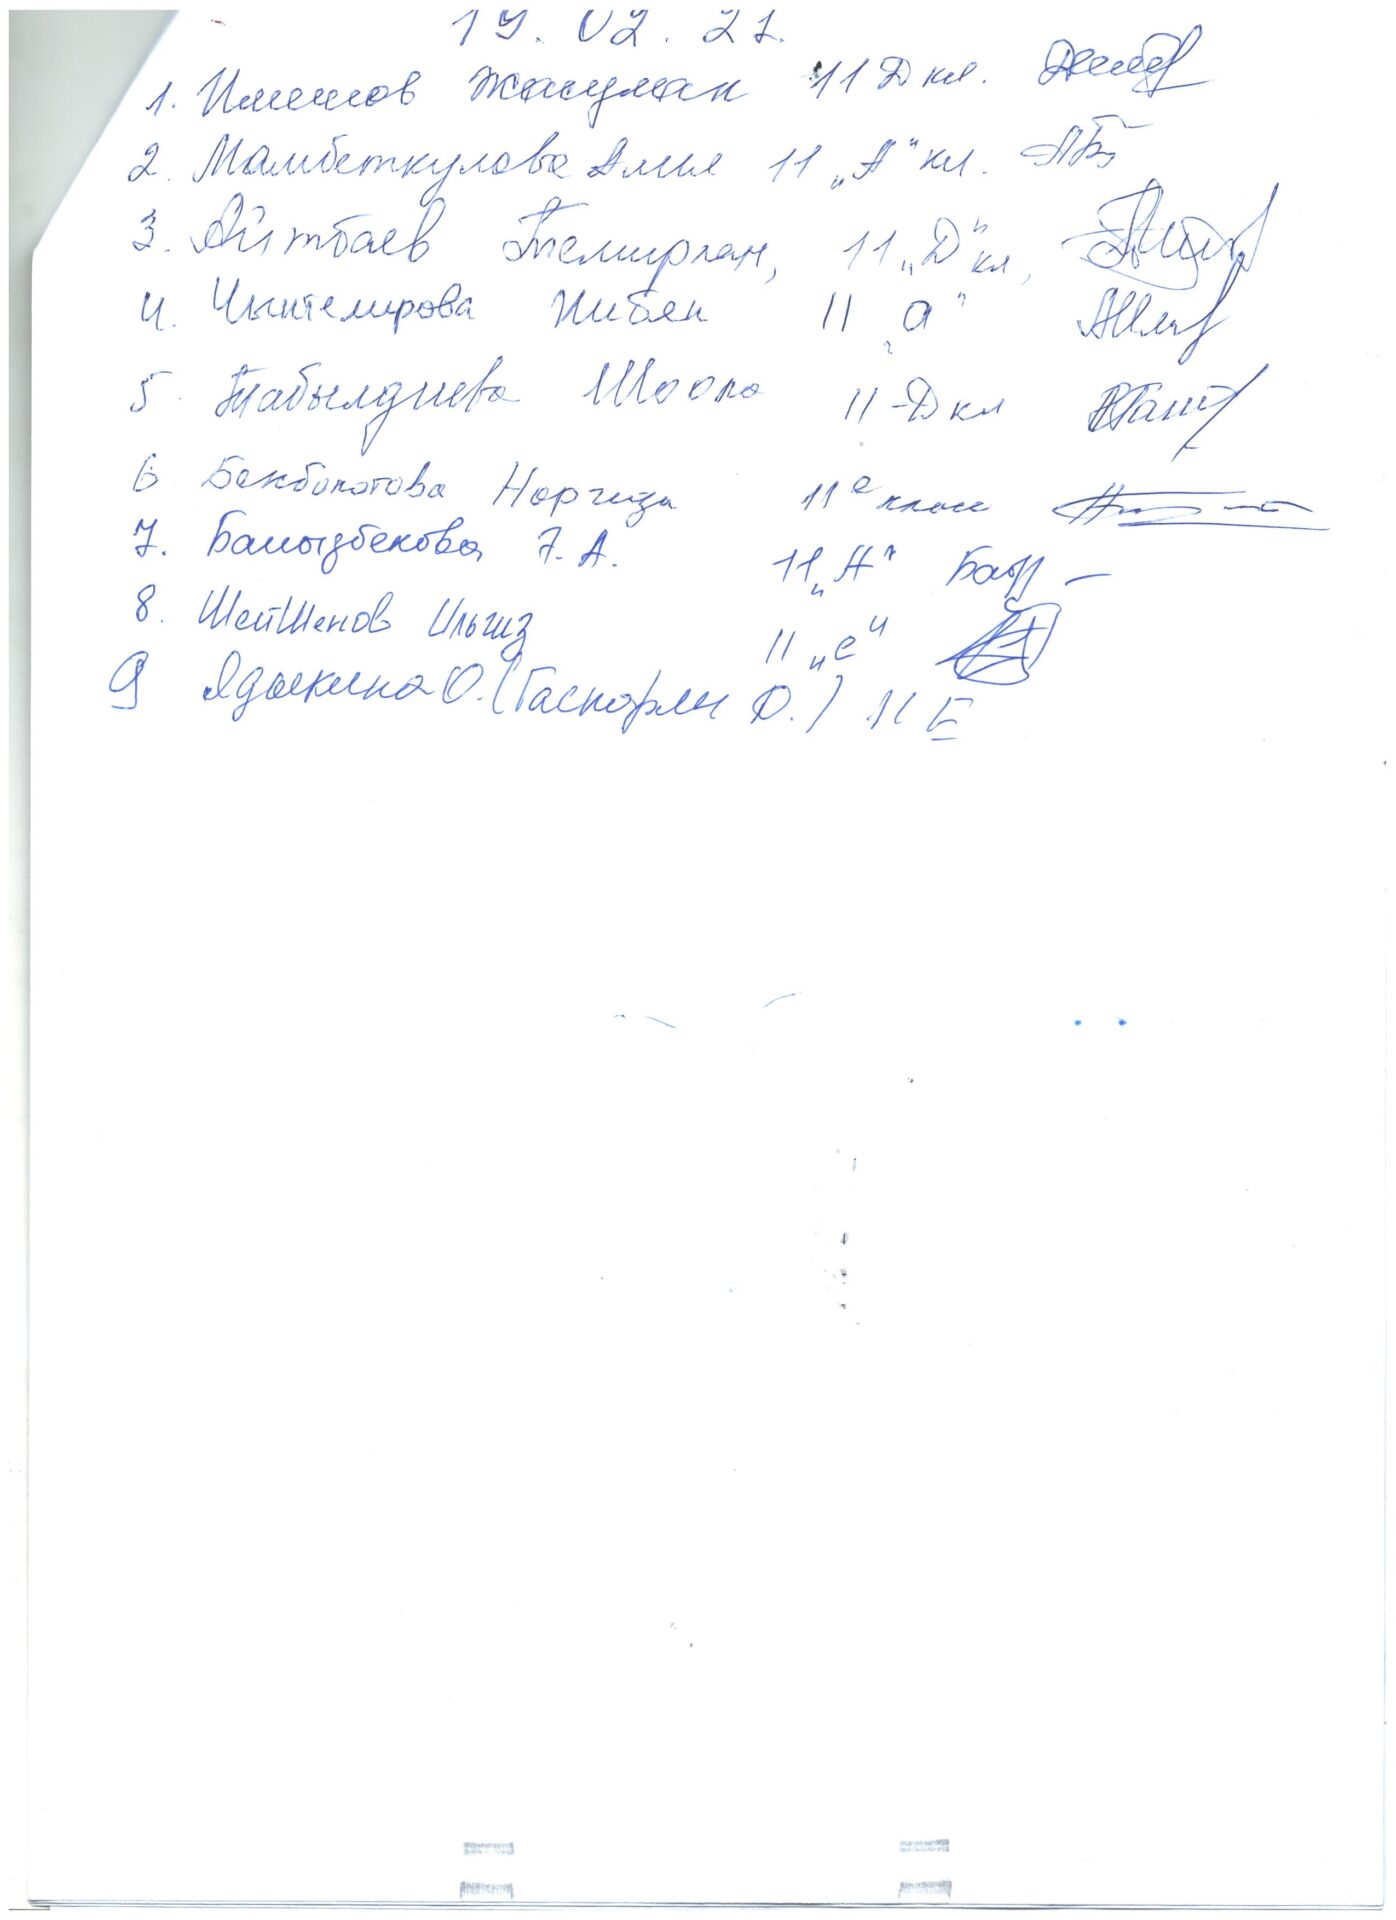 19.02.21.
1. Имешов Жасулан 11 Д кл.
2. Мамбеткулова Алия 11 „А" кл.
3. Айтбаев Темирлан, 11 „Д" кл,
4. Чынтемирова 11 „а"
5. Табылдиева Шоола 11-Д кл
6 Бекболотова Наргиза 11 е класс
7. Бамызбекова А. 11 „А"
8. Шейшенов Илгиз 11 „е"
9 Ядыкина О. (Гаспарян О.) 11 Б